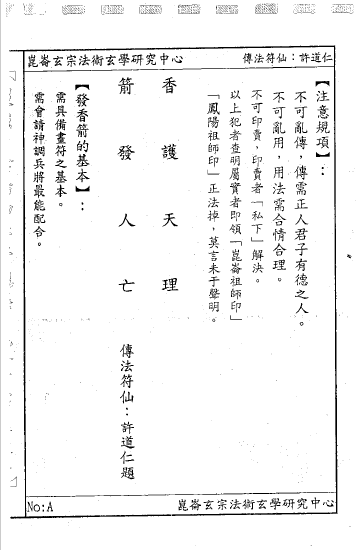 傳法符仙：許道仁
崑崙玄宗法術玄學研究中心
【注意規項】：
不可亂傳，傳需正人君子有德之人。
不可亂用，用法需合情合理。
不可印賣，印賣者「私下」解決。
以上犯者查明屬實者即領「崑崙祖師印」
「鳳陽祖師印」正法掉，莫言未于聲明。
香護天理
箭發人亡
傳法符仙：許道仁題
【發香箭的基本】：
需具備畫符之基本。
需會請神調兵將最能配合。
崑崙玄宗法術玄學研究中心
No:A